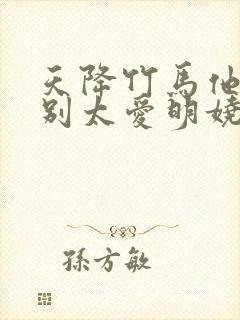 天降竹馬他
别太愛明嬈
孫方敏